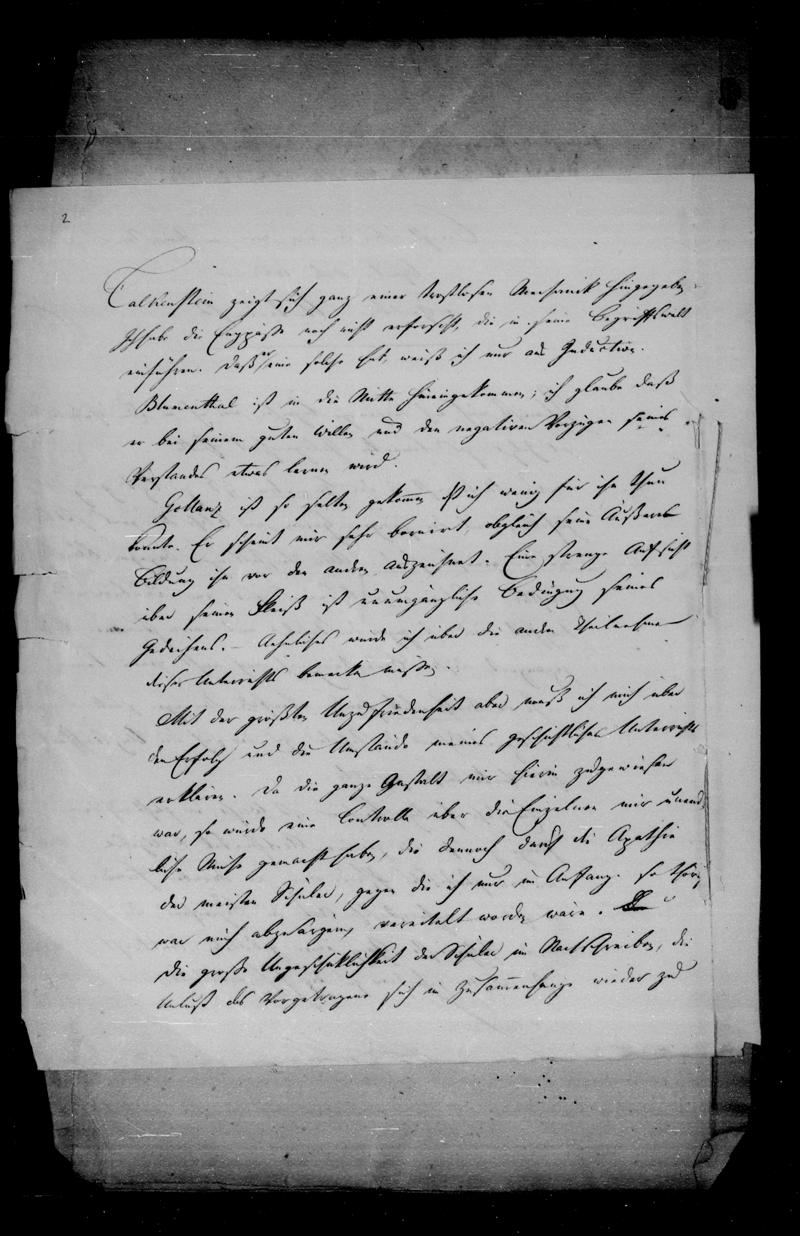 2
Calkenstein zeigt sich ganz einer trostlosen Mechanik hingegeben.
Ich habe die Engpässe noch nicht erforscht, die in seine Begriffswelt
einführen. Daß er eine solche hat, weiß ich nur aus Induction.
Blumenthal ist in die Mitte hineingekommen; ich glaube daß
er bei seinem guten Willen und den negativen Vorzügen seines
Verstandes etwas lernen wird.
Gollanz ist so selten gekommen daß ich wenig für ihn thun
konnte. Er scheint mir sehr bornirt, obgleich seine Außere
Bildung ihn vor den andern auszeichnet. Eine strenge Aufsicht
über seinen Fleiß ist unumgängliche Bedingung seines
Gedeihens. – Aehnliches würde ich über die andern Theilnehmer
dieses Unterrichts bemerken müssen.
Mit der größten Unzufriedenheit aber muß ich mich über
den Erfolg und die Umstände meines geschichtlichen Unterrichts
erklären. Da die ganze Anstalt mir hierin zugewiesen
war, so würde eine Controlle über die Einzelnen mir unend-
liche Mühe gemacht haben, die dennoch durch die Apathie
der meisten Schüler, gegen die ich nur im Anfang so thörig
war mich abzusorgen, vereitelt worden wäre.
Die große Ungeschicklichkeit der Schüler im Nachschreiben, die
Unlust das Vorgetragene sich im Zusammenhange wieder zu